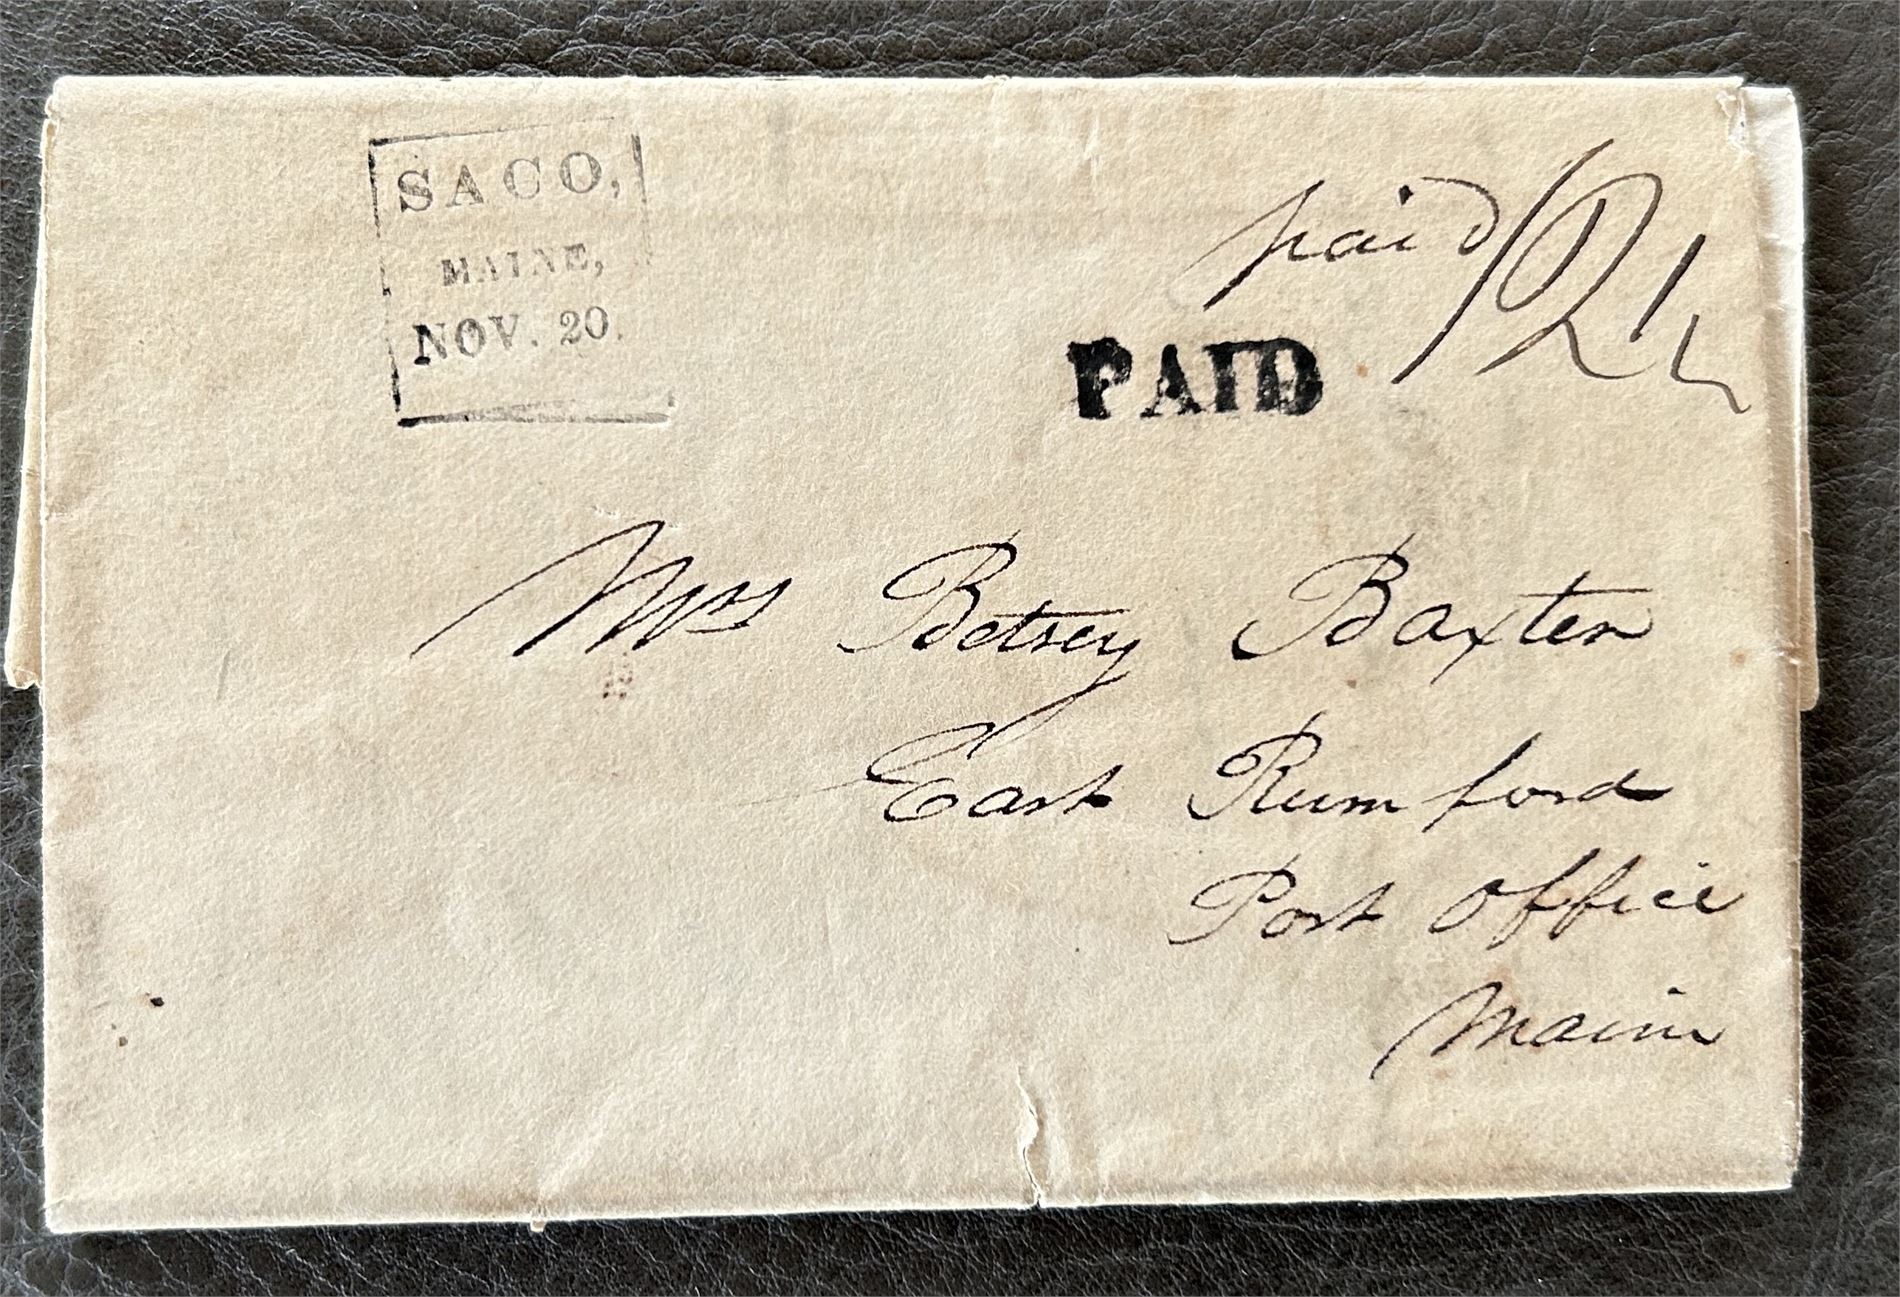 SACO,
MAINE,
NOV. 20.
paid 12½
PAID
Mrs Betsey Baxter
East Rumford
Post Office
Maine